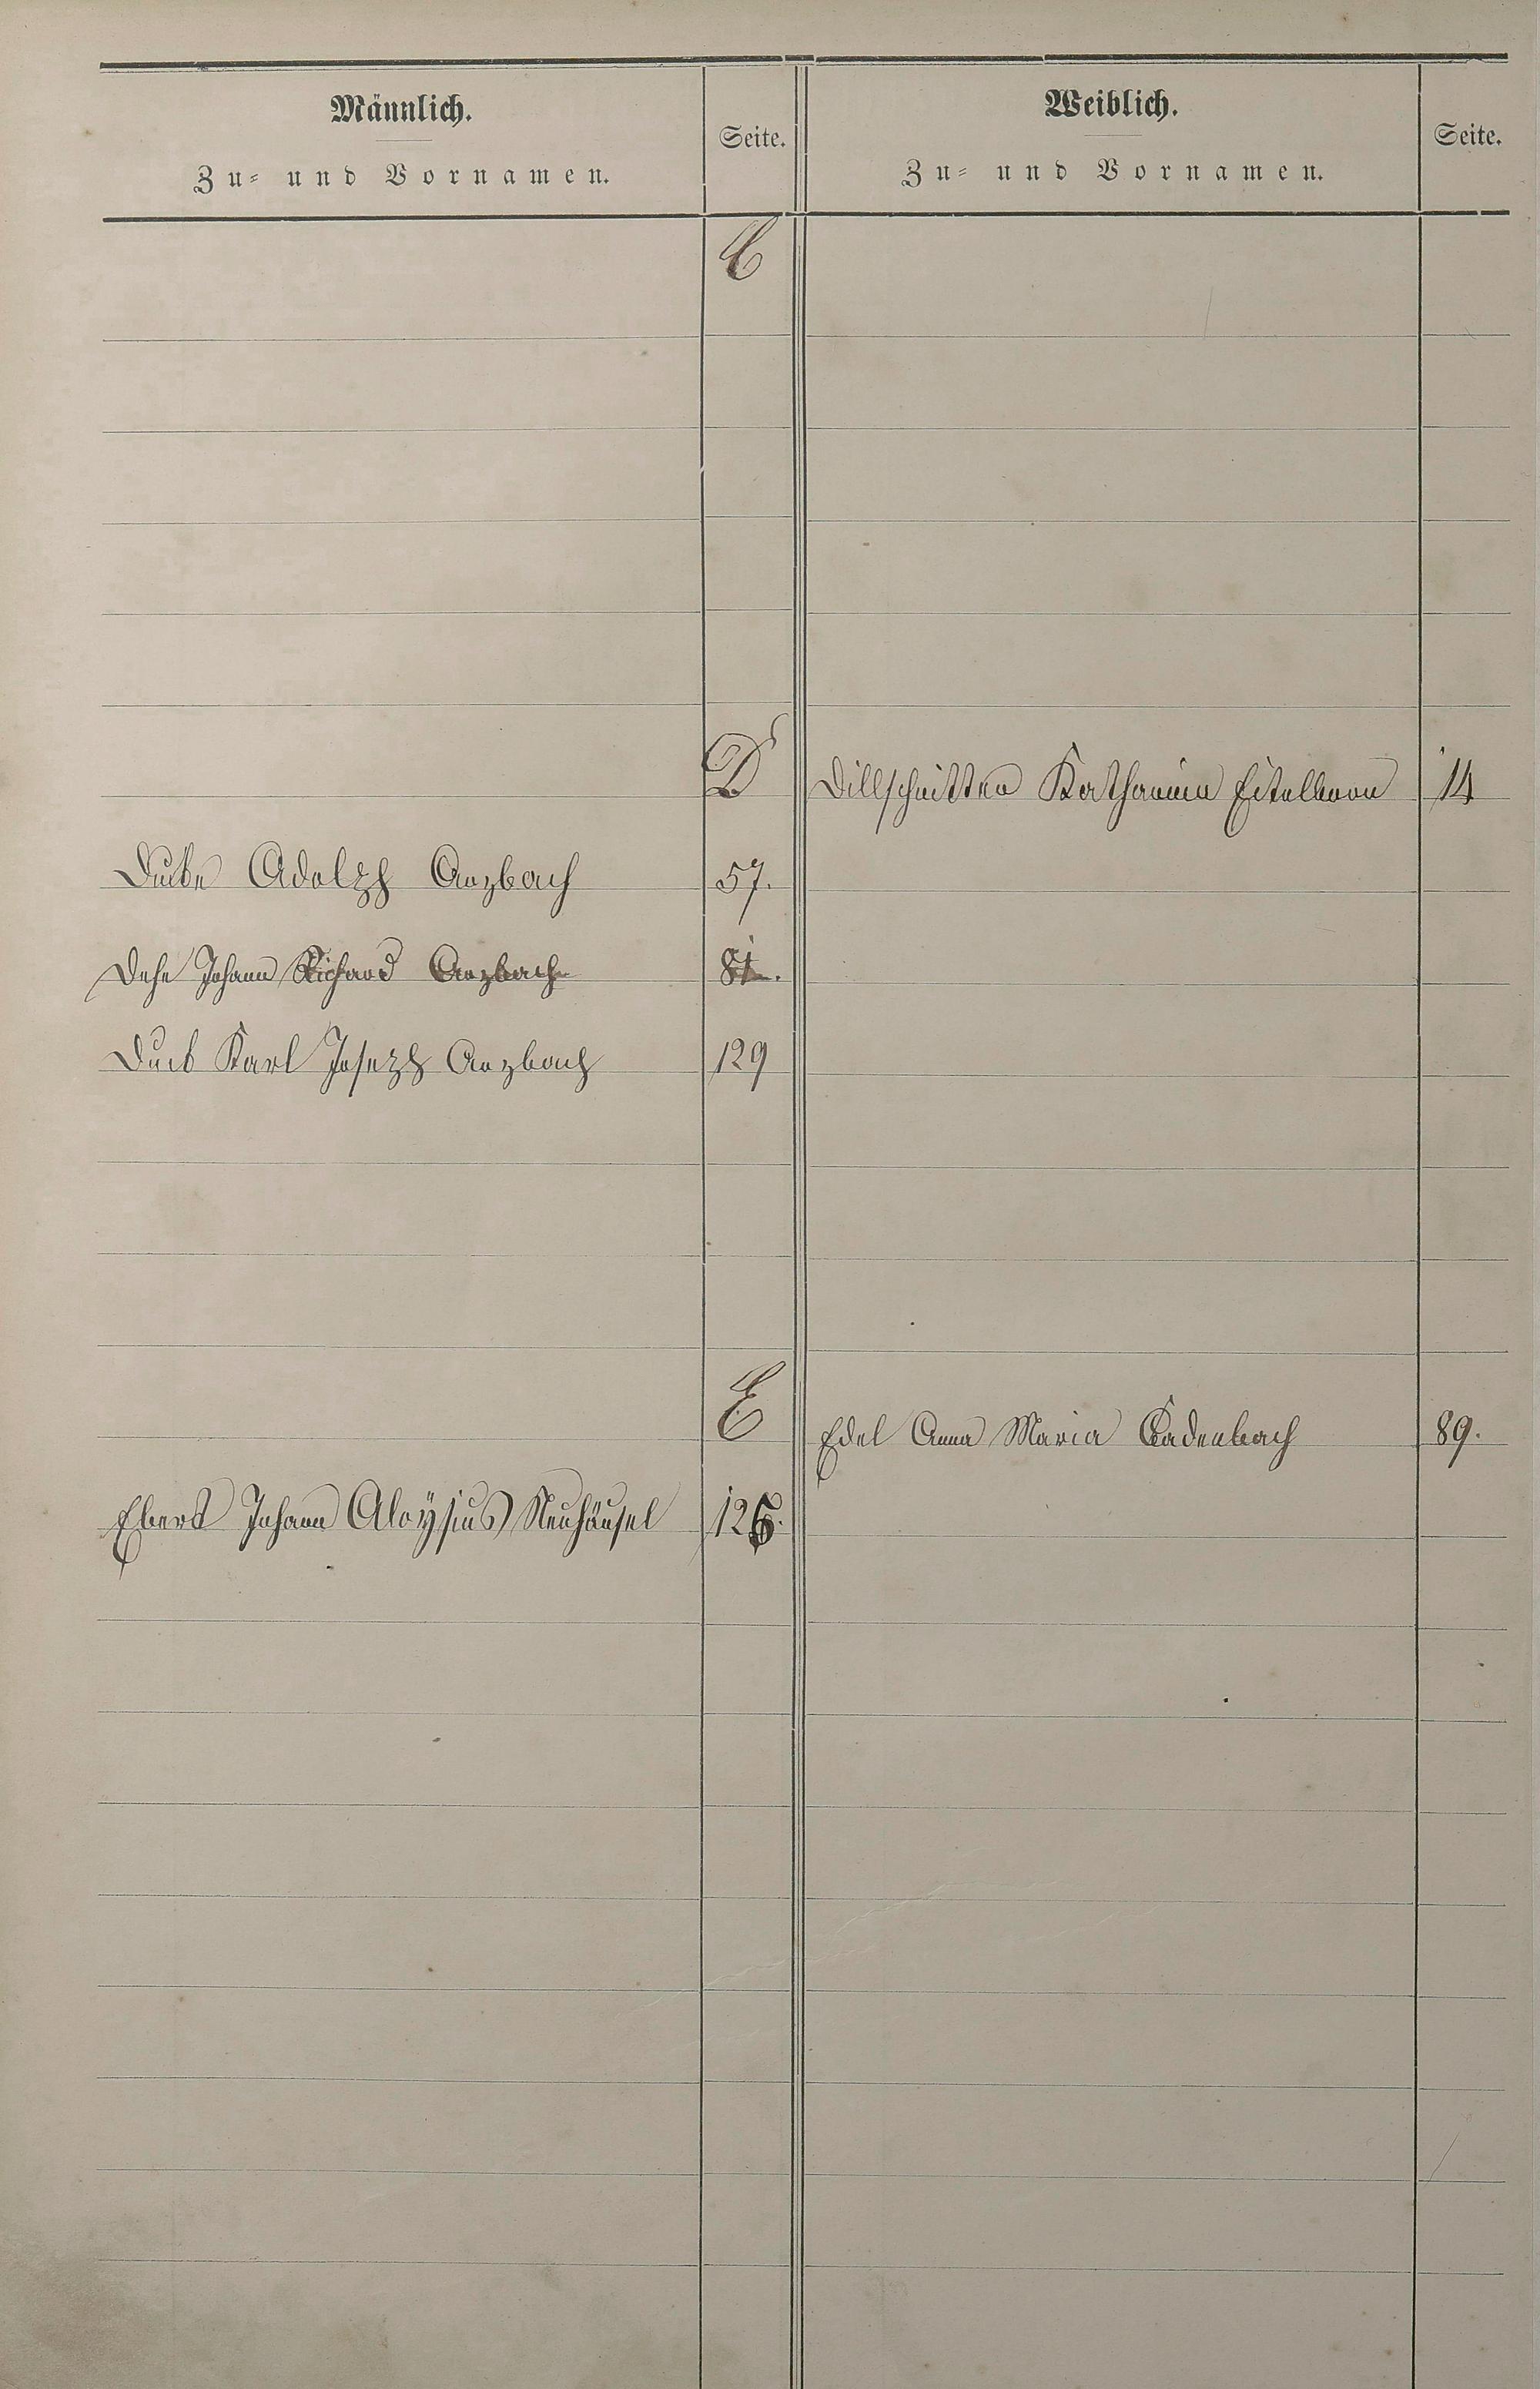 Männlich.
Zu- und Vornamen.
Seite.
Weiblich.
Zu- und Vornamen.
Seite.
C
D
Dillschnitter Katharina Eitelborn 14
Adolph Arzbach 57.
Dehe Johann Richard Arzbach 81.
Karl Joseph Arzbach 129
E
Edel Anna Maria Cadenbach 89.
Ebert Johann Aloysius Neuhäusel 126.